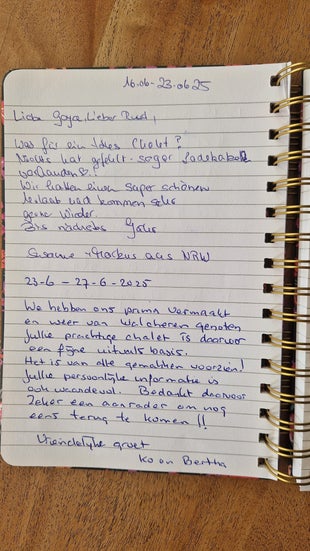 16.06-23.06.25
Liebe Goyce, Lieber Ruud,
Was für ein tolles Chalet?
Nichts hat gefehlt - sogar Ladekabel
vorhanden
Wir hatten einen super schönen
Urlaub und kommen sehr
gerne wieder.
Bis nächstes Jahr
Susanne + Markus aus NRW
23-6 - 27-6-2025
We hebben ons prima vermaakt
en weer van Walcheren genoten
Jullie prachtige chalet is daarvoor
een fijne uitvalsbasis.
Het is van alle gemakken voorzien!
Jullie persoonlijke informatie is
ook waardevol. Bedankt daarvoor
Zeker een aanrader om nog
eens terug te komen!!
Vriendelijke groet
Ko en Bertha